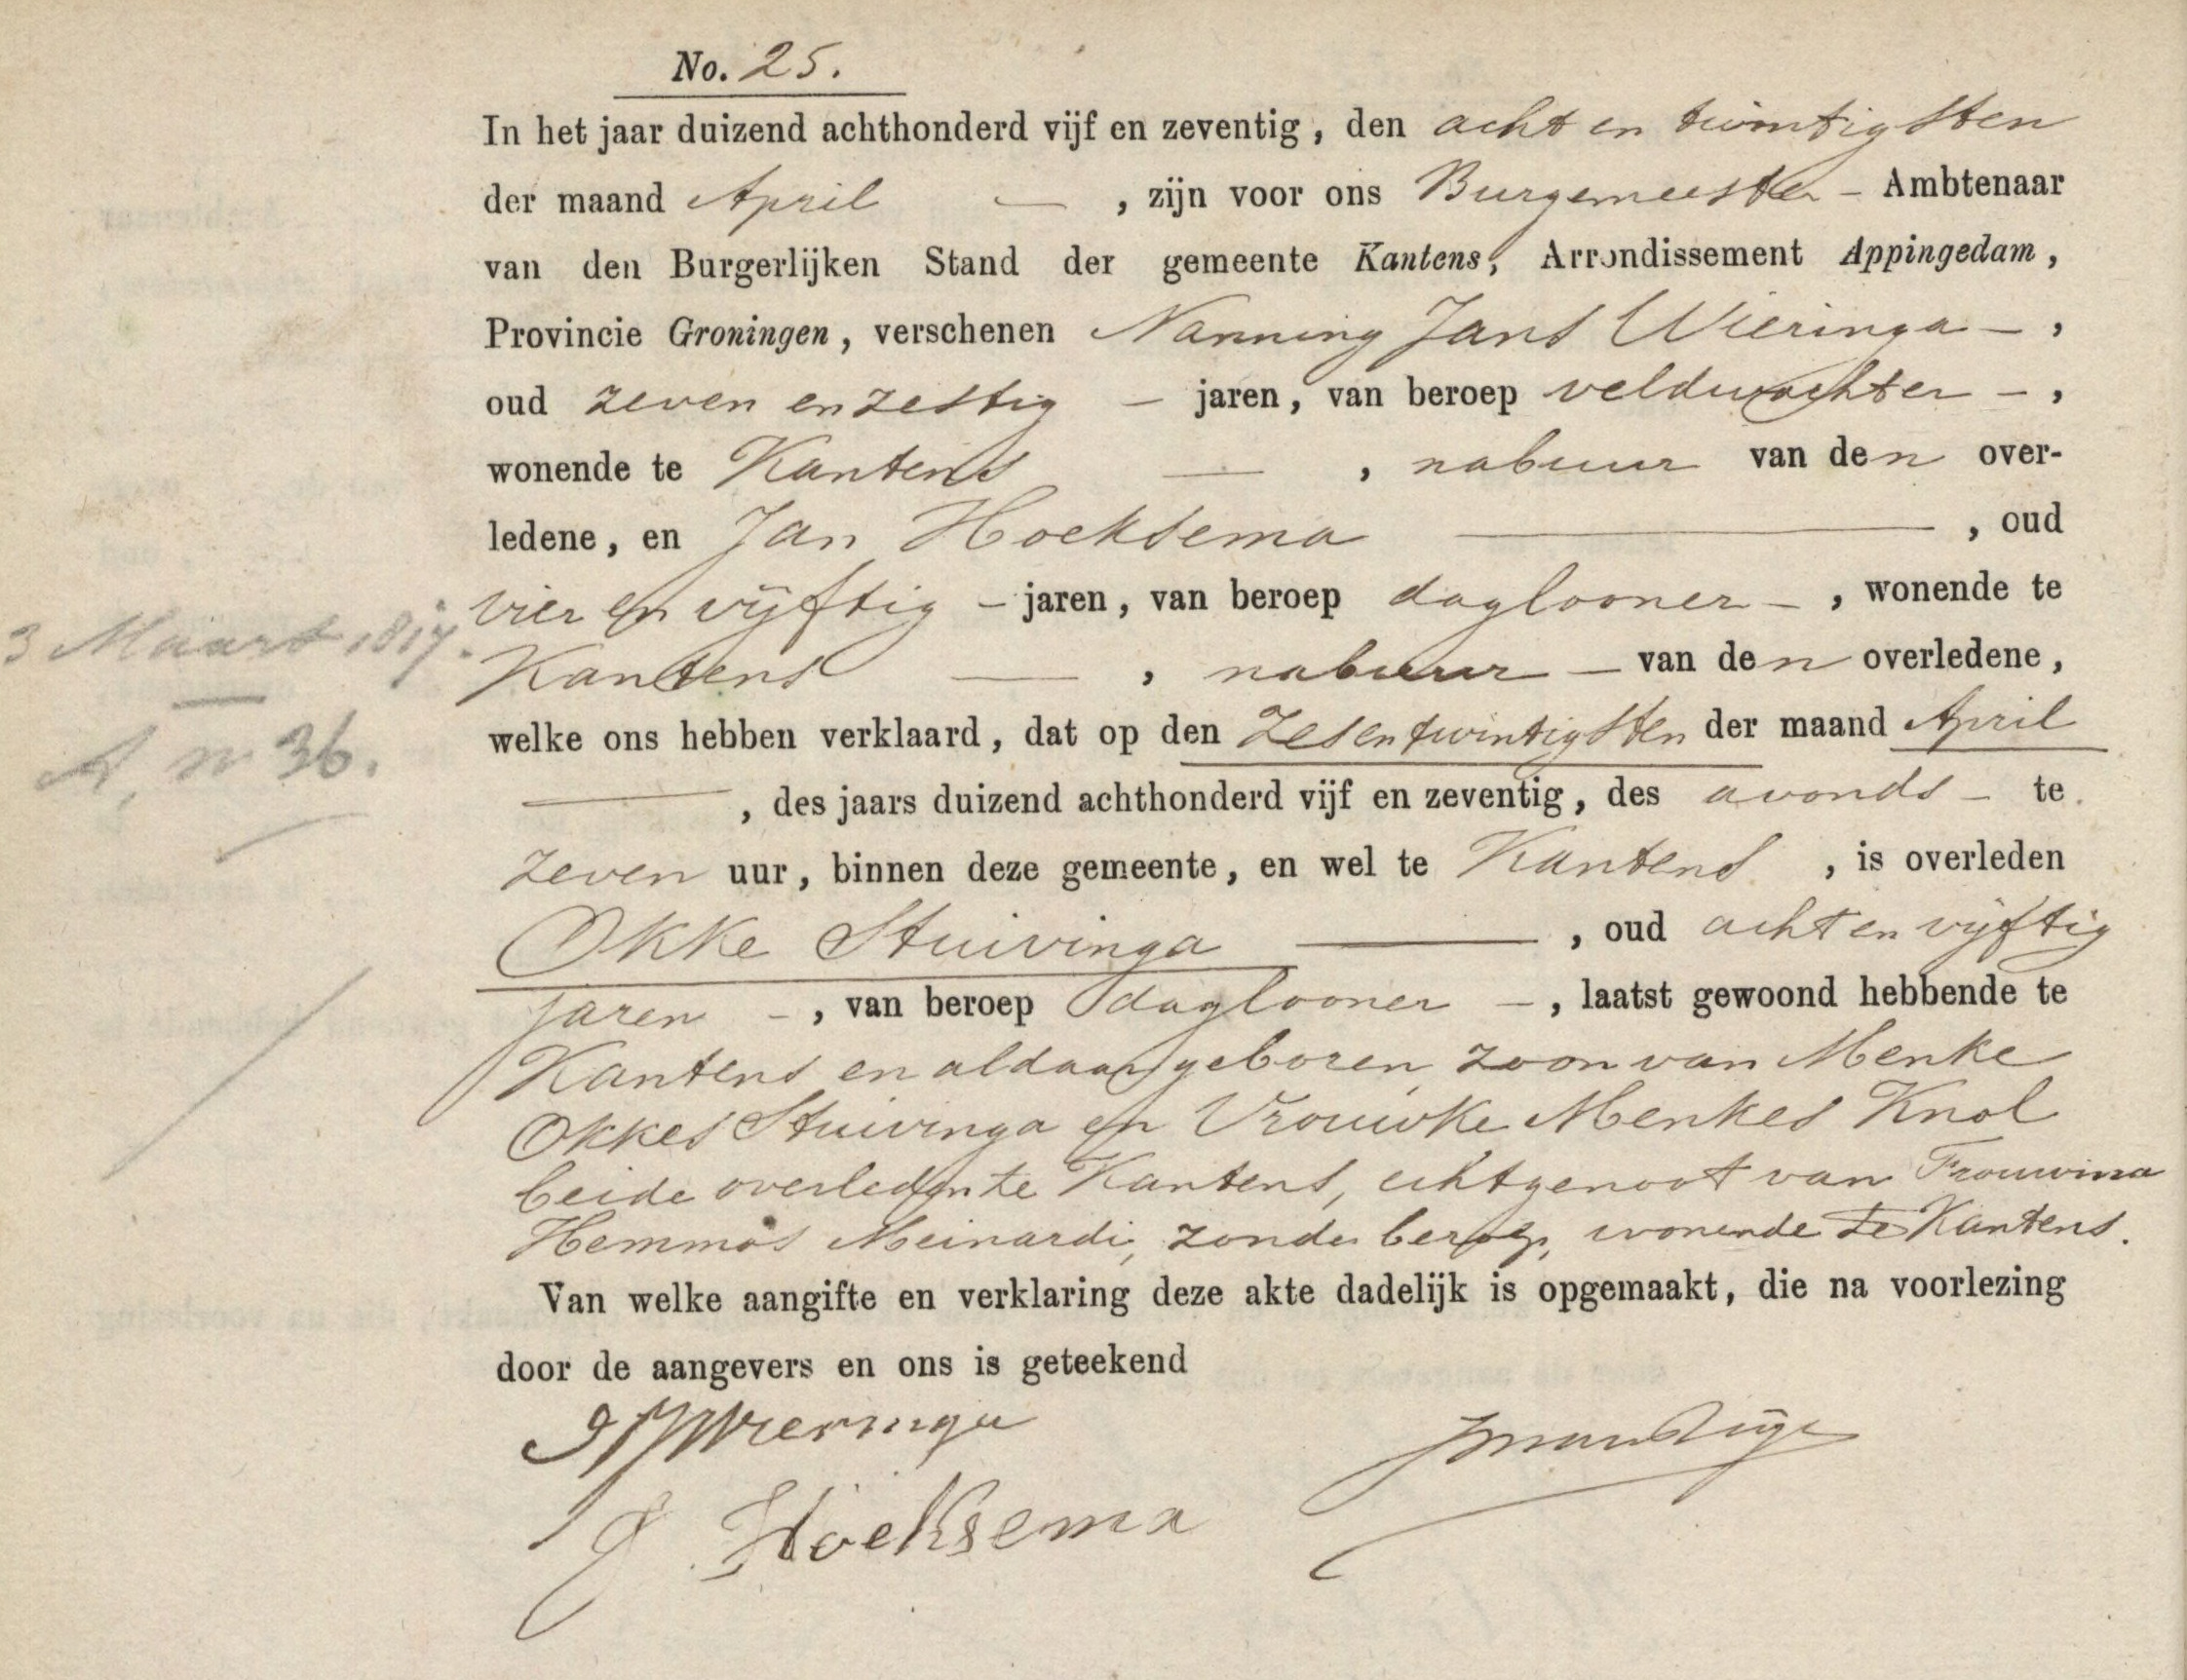 No. 25.
In het jaar duizend achthonderd vijf en zeventig, den acht en twintigsten
der maand April —, zijn voor ons Burgemeester – Ambtenaar
van den Burgerlijken Stand der gemeente Kantens, Arrondissement Appingedam,
Provincie Groningen, verschenen Nanning Jans Wieringa –,
oud zeven en zestig – jaren, van beroep veldwachter –,
wonende te Kantens —, nabuur van den over-
ledene, en Jan Hoeksema —, oud
vier en vijftig – jaren, van beroep daglooner –, wonende te
3 Maart 1817.
Kantens —, nabuur – van den overledene,
welke ons hebben verklaard, dat op den zesentwintigsten der maand April
A, n 36.
—, des jaars duizend achthonderd vijf en zeventig, des avonds – te
zeven uur, binnen deze gemeente, en wel te Kantens, is overleden
Okke Stuivinga —, oud acht en vijftig
jaren –, van beroep daglooner –, laatst gewoond hebbende te
Kantens en aldaar geboren, zoon van Menke
Okkes Stuivinga en Vrouwke Menkes Knol
beide overleden te Kantens, echtgenoot van Frouwina
Hemmos Meinardi, zonder beroep, wonende te Kantens.
Van welke aangifte en verklaring deze akte dadelijk is opgemaakt, die na voorlezing
door de aangevers en ons is geteekend
NJWieringa
J Hoeksema